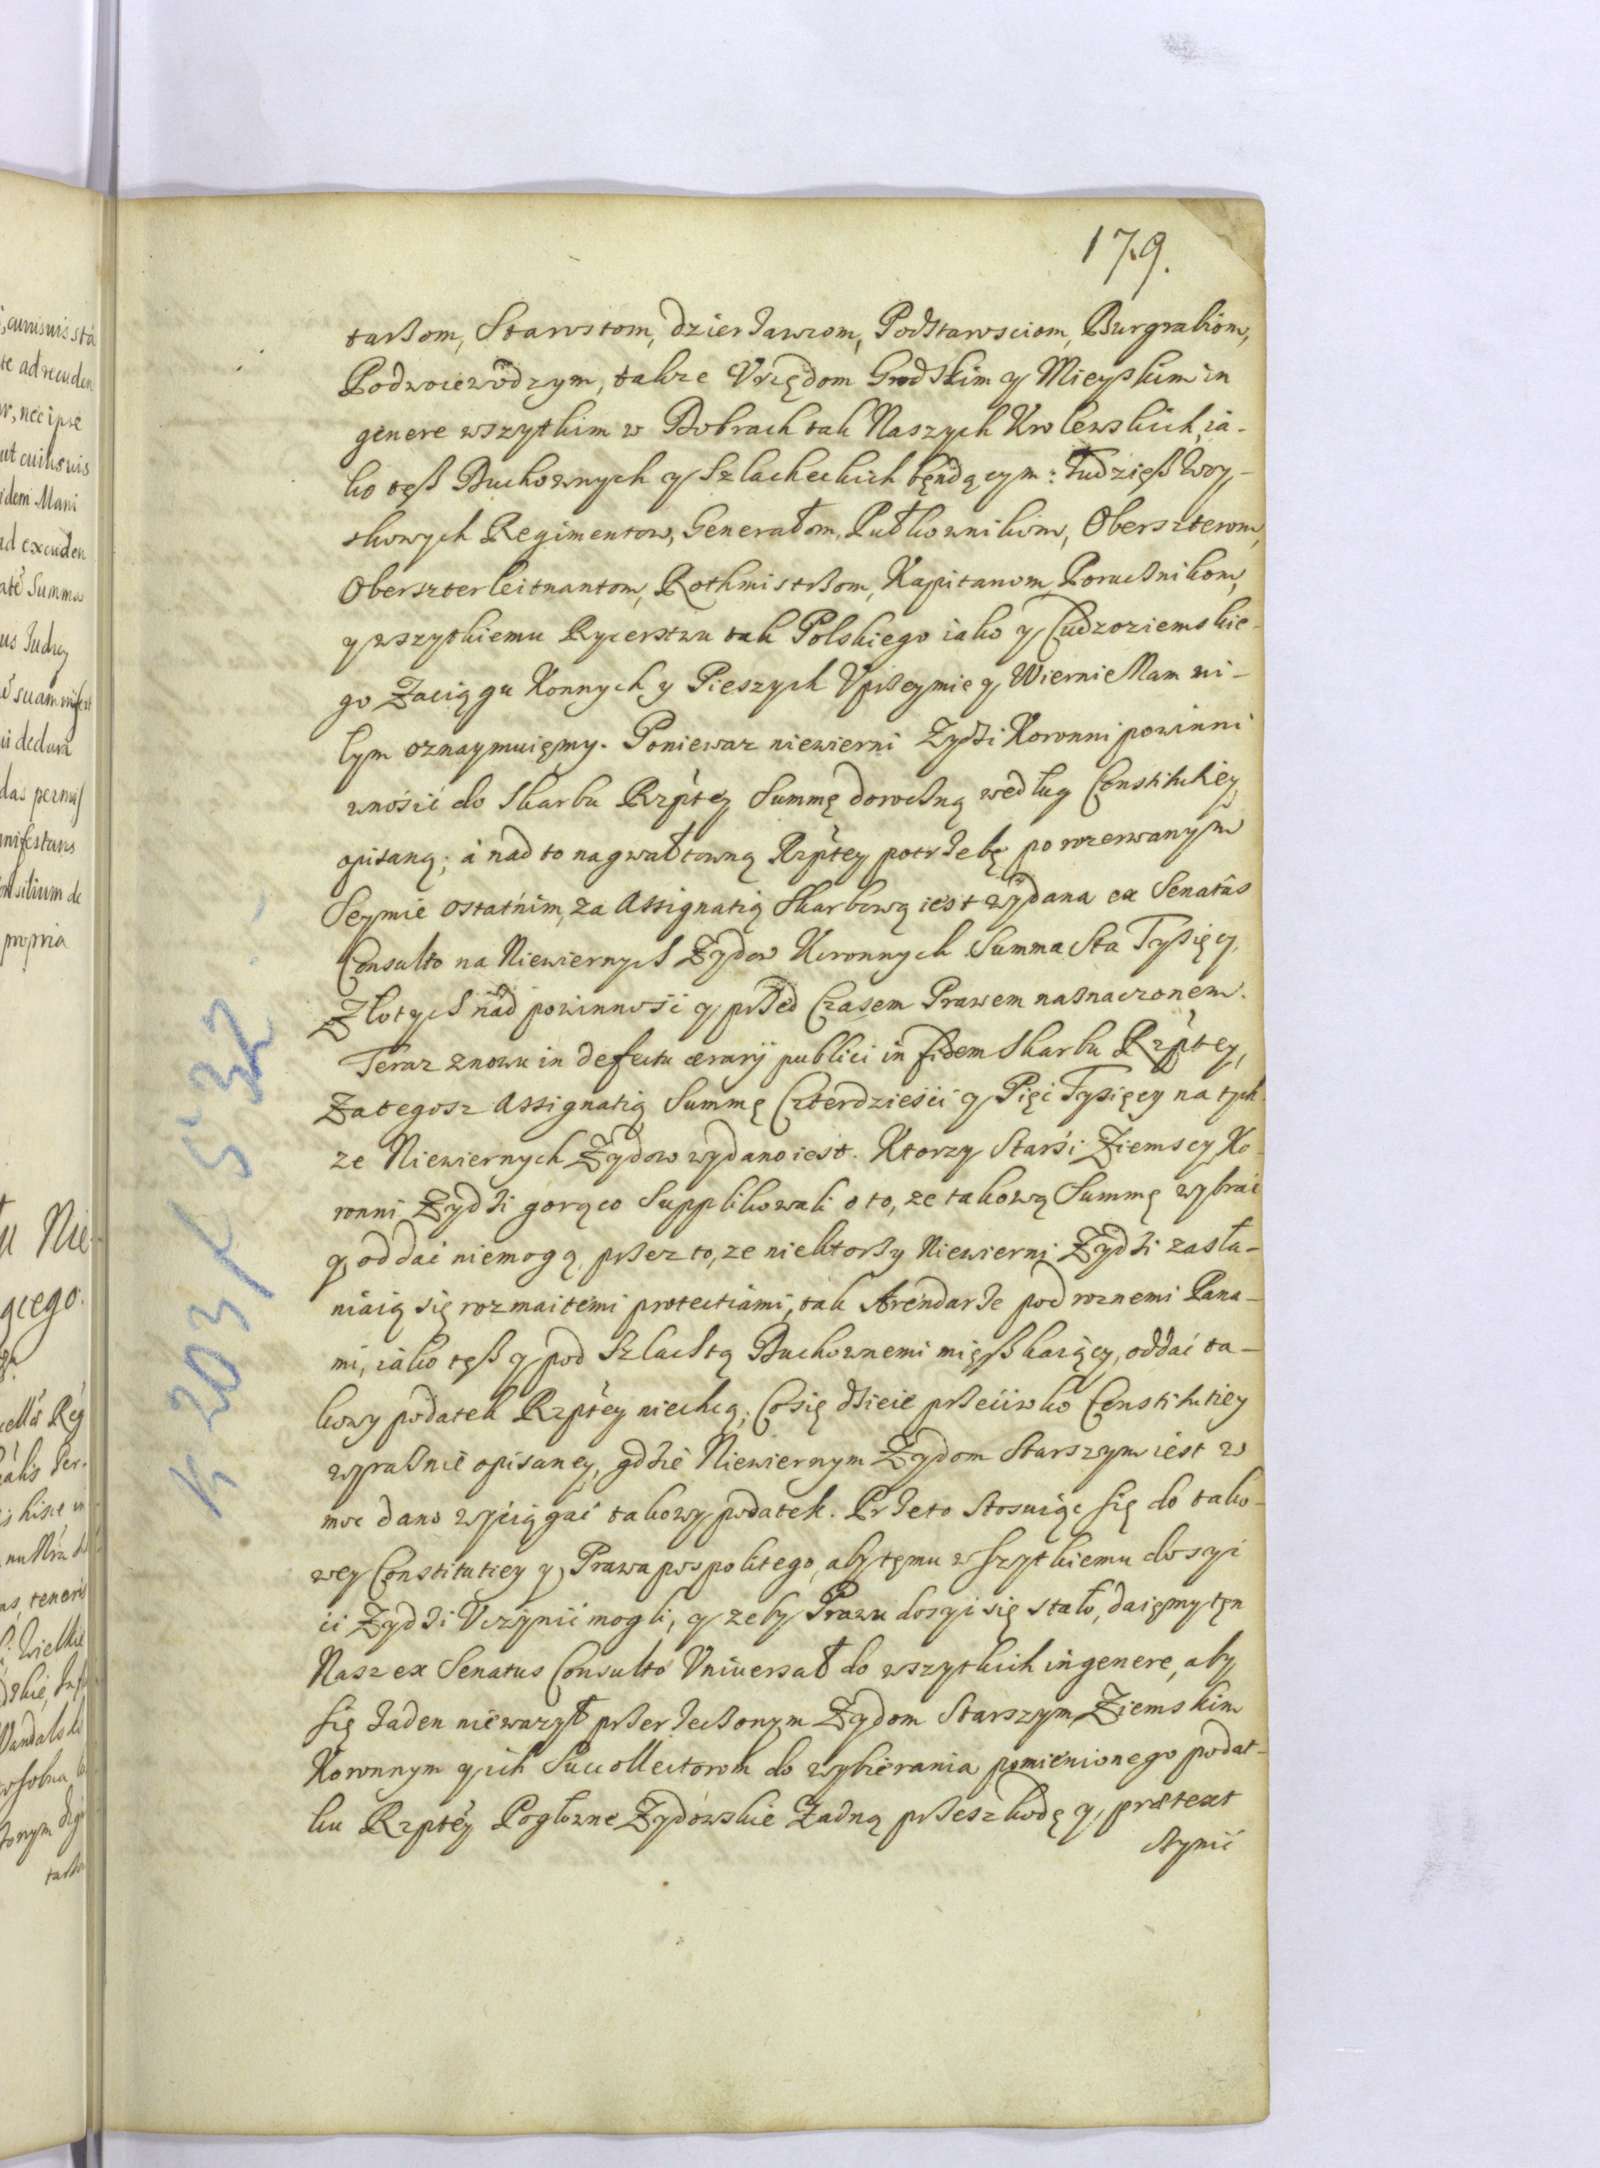 179.
tarßom, Starostom, dzierżawcom, Podstarosciom, Burgrabiom,
Podwoiewodzym, takze Vrzędom Grodskim y Mieyskim in
genere wszytkim w Dobrach tak Naszych Krolewskich, ia-
ko tęß Duchownych y Szlacheckich będącym: Tudzięß Woy-
skowych Regimentow, Generałom, Pułkownikom, Oberszterom,
Oberszterleitnantom, Rothmistrßom, Kapitanom, Porucßnikom,
y wszytkiemu Rycerstwu tak Polskiego iako y Cudzoziemskie-
go Zaciągu Konnych y Pieszych Vprßeymie y Wiernie Nam mi-
łym oznaymuięmy. Poniewaz niewierni Zydzi Koronni powinni
wnośić do Skarbu Rzptey Summę dorocßną według Constitutiey
opisaną; á nad to na gwałtowną Rzptey potrżebę po rozerwanym
Seymie ostatnim, za Assignatią Skarbową iest wydana ex Senatûs
Consulto na Niewiernych Zydow Koronnych Summa Sta Tysięcy
Złotych nad powinność y prßed Czasem Prawem naznaczonem.
Teraz znowu in defectu ærarij publici in fidem Skarbu Rzptey,
Za tegosz Assignatią Summę Czterdzieści y Pięć Tysięcy na tych-
ze Niewiernych Zydow wydano iest. Ktorzy Starśi Ziemscy Ko-
ronni Zydżi gorąco Supplikowali o to, ze takową Summę wybrać
y oddać niemogą, prßez to, ze niektorßy Niewierni Zydżi zasła-
niáią się rozmaitemi protectiami, tak Arendarże pod roznemi Pana-
mi, iáko tęß y pod Szlachtą Duchownemi mięßkaiący, oddać ta-
kowy podatek Rzptey niechcą; Co się dżieie prßećiwko Constitutiey
wyraßnie opisaney, gdżie Niewiernym Zydom Starszym iest w
moc dano wyciągać takowy podatek. Prżeto stosuiąc się do tako-
wey Constitutiey y Prawa pospolitego, aby tęmu wszytkiemu dosyć
ci Zydżi Vczynić mogli, y zeby Prawu dosyć się stało, daięmy tęn
Nasz ex Senatus Consulto Vniuersał do wszytkich in genere, aby
się żaden nieważył prßerżecßonym Zydom Starszym Ziemskim
Koronnym y ich Succollectorom do wybierania pomienionego podat-
ku Rzptey Pogłowne Zydowskie Zadną prßeszkodę y prætext
K 203/532